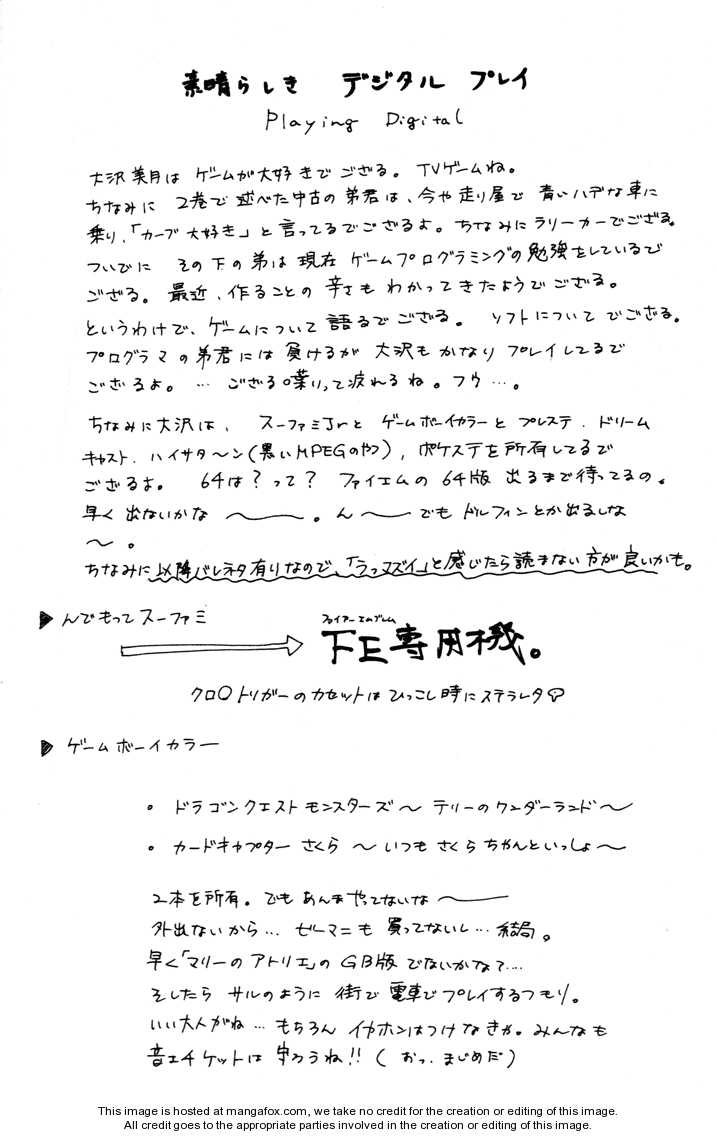 素晴らしき デジタル プレイ
Playing Digital
大沢美月は ゲームが大好きでござる。 TVゲームね。
ちなみに 2巻で述べた中古の弟君は、今や走り屋で 青いハデな車に
乗り、「カーブ大好き」と言ってるでござるよ。ちなみにラリーカーでござる。
ついでに その下の弟は現在 ゲームプログラミングの勉強をしているで
ござる。最近、作ることの 辛さも わかってきたようでござる。
というわけで、ゲームについて 語るでござる。 ソフトについてでござる。
プログラマの弟君には 負けるが 大沢も かなり プレイしてるで
ござるよ。… ござる喋りって疲れるね。フウ…。
ちなみに大沢は、 スーファミJrと ゲームボーイカラーと プレステ、ドリーム
キャスト、ハイサターン(黒いMPEGのやつ)、ポケステを所有してるで
ござるよ。 64は?って? ファイエムの 64版 出るまで待ってるの。
早く 出ないかな〜。ん〜でも ドルフィンとか出るしな
〜。
ちなみに以降バレネタ有りなので、「うっマズイ」と感じたら読まない方が良いかも。
▶ んでもってスーファミ
ファイアーエムブレム
FE専用機。
クロ〇トリガーのカセットは ひっこし時にステラレタ♡
▶ ゲームボーイカラー
• ドラゴンクエスト モンスターズ 〜 テリーのワンダーランド〜
• カードキャプター さくら 〜 いつも さくら ちゃんといっしょ〜
2本を所有。でも あんま やってないな〜
外出ないから… ビーマニも 買ってないし… 結局。
早く「マリーの アトリエ」の GB版 でないかな?…
そしたら サルのように 街で 電車で プレイするつもり。
いい大人がね… もちろん イヤホンはつけなきゃ。みんなも
音エチケットは 守ろうね!! ( おっ、まじめだ )
This image is hosted at mangafox.com, we take no credit for the creation or editing of this image.
All credit goes to the appropriate parties involved in the creation or editing of this image.